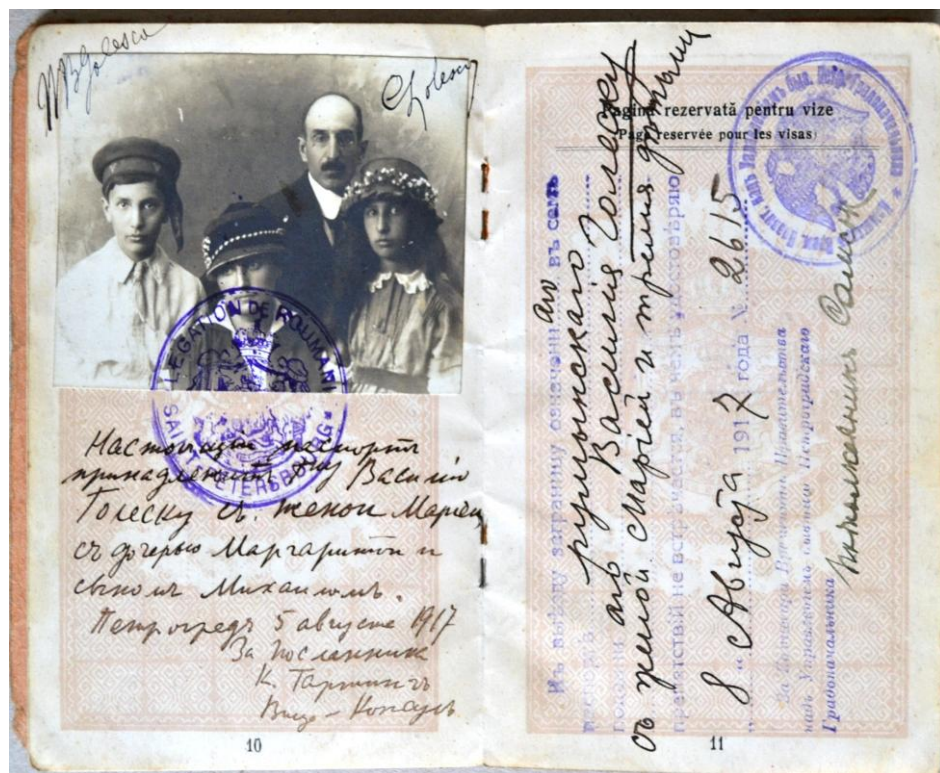 Golesco
LEGATION DE ROUMANIE
PETERSBOURG
Настоящій паспортъ
принадлежитъ Василію
Голеску съ женой Маріей
съ дочерью Маргаритой и
сыномъ Михаиломъ.
Петроградъ 5 августа 1917
За Посланника
К.
Вице-Консулъ
10
Pagina rezervată pentru vize
(Page reservée pour les visas)
Къ выѣзду заграницу означен въ семъ
аго
паспортѣ румынскаго
под аго Василія Голеску
съ женой Маріей и тремя дѣтьми
препятствій не встрѣчается, въ чемъ удостовѣряю
8 „ Августа 1917 года № 2615
Правительства
надъ Петроградскаго
Градоначальника
11